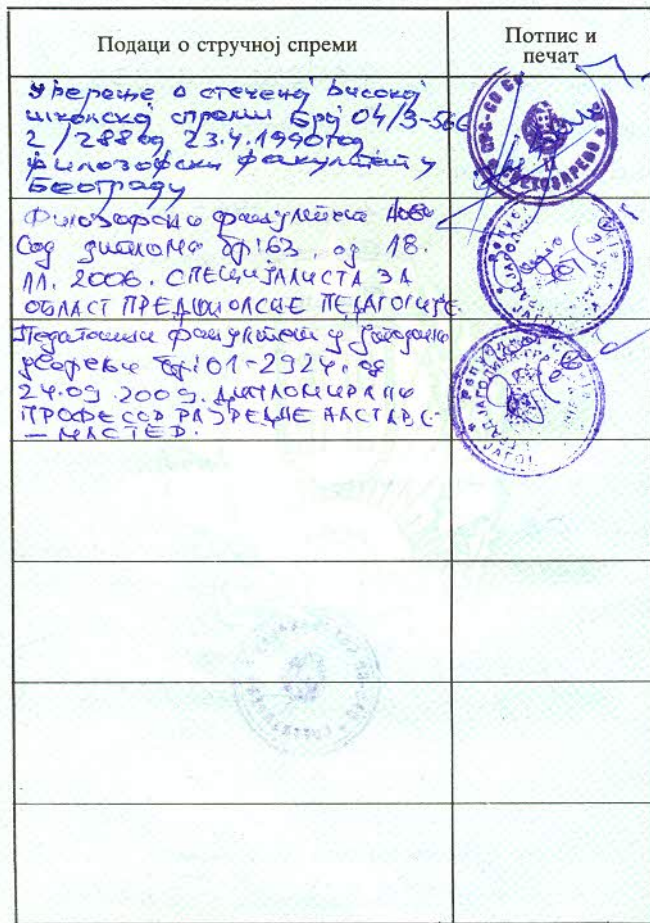 Подаци о стручној спреми
Потпис и
печат
Уверење о стеченој високој
школској спреми број 04/3-566
2/288 од 23.4.1990 год
Филозофски факултет у
Београду
Филозофски факултет Нови
Сад диплома бр: 63. од 18.
11. 2006. СПЕЦИЈАЛИСТА ЗА
ОБЛАСТ ПРЕДШКОЛСКЕ ПЕДАГОГИЈЕ
Педагошки факултет у Јагодини
уверење бр: 01-2924. од
24.09.2009. ДИПЛОМИРАНИ
ПРОФЕСОР РАЗРЕДНЕ НАСТАВЕ
— МАСТЕР.
СВЕТОЗАРЕВО